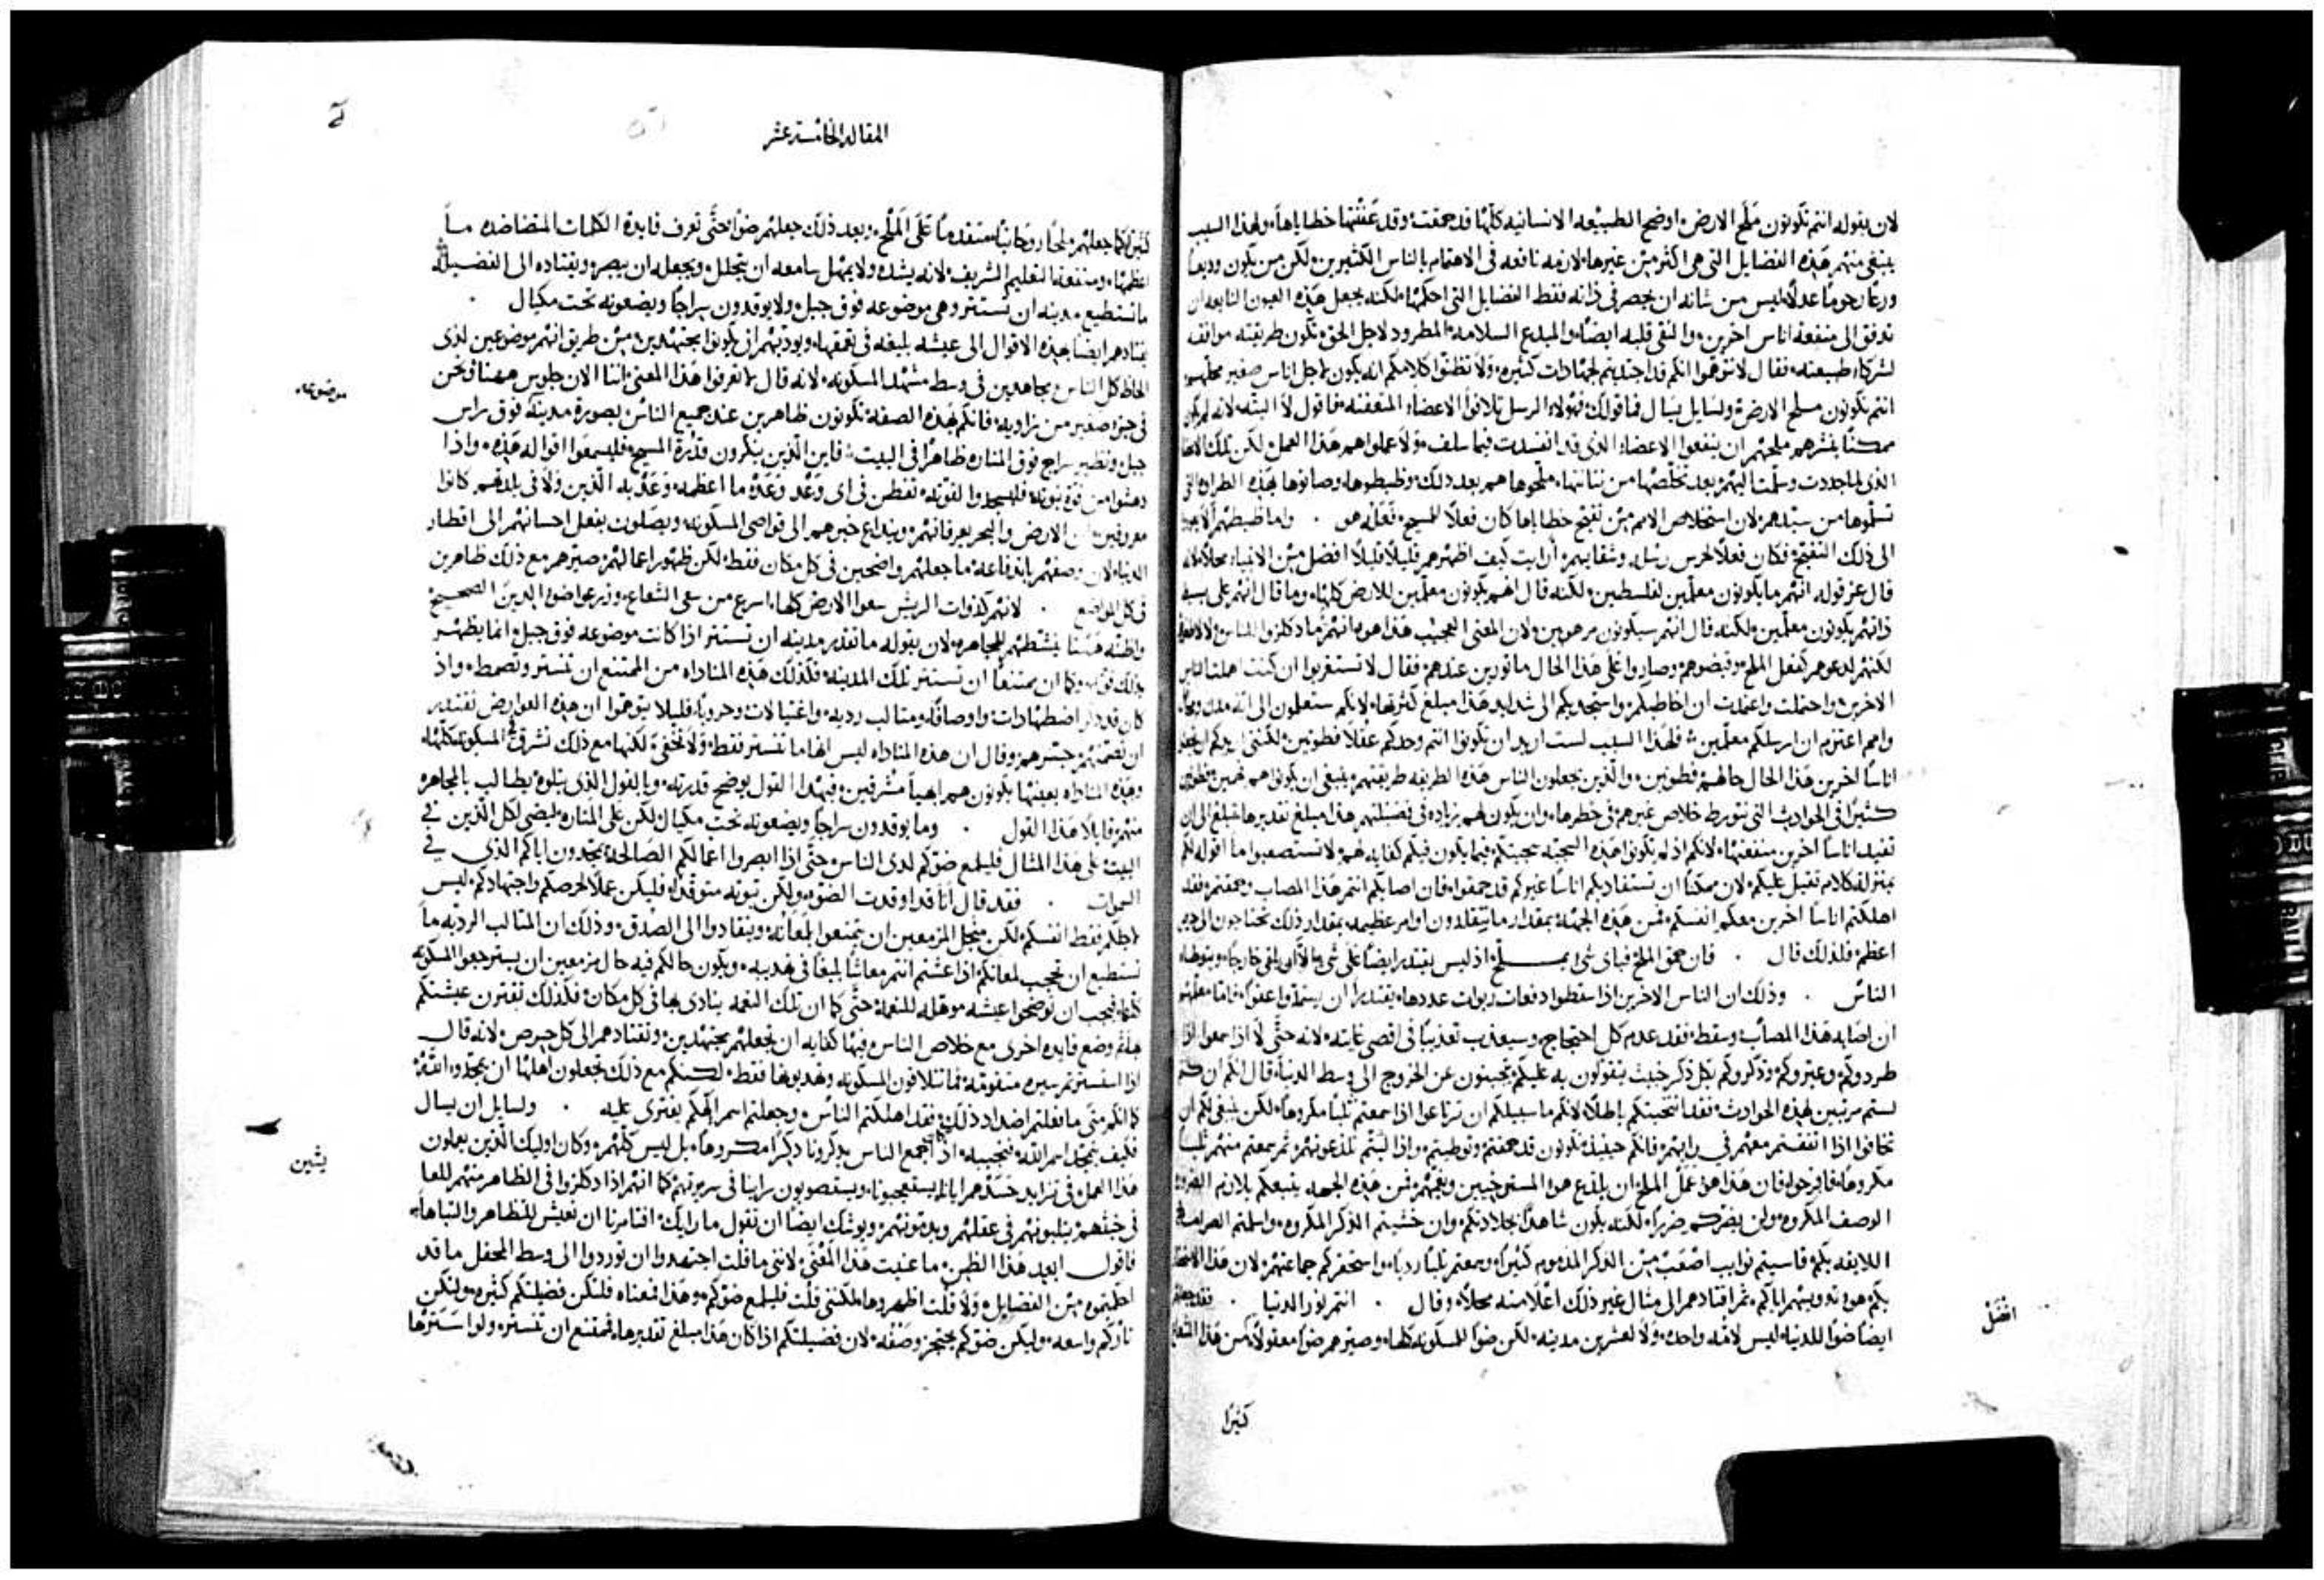 لان بقوله انتم تكونون ملح الارض، اوضح الطبيعه الانسانيه كلها قد حمقت وقد عفنتها خطاياها، ولهذا السبب
ينبغي منهم هذه الفضايل التي هي اكثر من غيرها لازمه نافعه في الاهتمام بالناس الكثيرين، ولكن من يكون وديعا
ورعا رحوما عدلا، ليس من شانه ان يحصر في ذاته فقط الفضايل التي احكمها، لكنه يجعل هذه العيون النابعه ان
تدفق الى منفعة اناس اخرين، والنقي قلبه ايضا، والمبدع السلامه، المطرود لاجل الحق، تكون طريقته موافقه
لشركاء طبيعته، فقال لا تتوهموا انكم قد اجتذبتم لجهادات كثيره، ولا تظنوا كلامكم انه يكون لاجل اناس صغير محلهم
انتم تكونون ملح الارض، ولسايل يسال فما قولك، فهولاء الرسل تلافوا الاعضاء المتعفنه، فاقول لا البته، لانه لم يكن
ممكنا بنشرهم ملحهم ان ينفعوا الاعضاء التي قد انفسدت فيما سلف، ولا عملوا هم هذا العمل، لكن تلك الاعضا
الذي لما جددت وسلمت اليهم بعد تخلصها من نتانتها، ملحوها هم بعد ذلك، وضبطوها، وصانوها بهذه الطراوه التي
تسلموها من سيدهم، لان استخلاص الامم من نفتح خطاياها كان فعلا للمسيح فعله هو . واما ضبطهم لا يعودوا
الى ذلك التفتح، فكان فعلا لحرص رسله وشقايهم، أرايت كيف اظهرهم قليلا قليلا افضل من الانبياء محلا، لانه
قال عز قوله انهم ما يكونون معلمين لفلسطين، لكنه قال انهم يكونون معلمين للارض كلها، وما قال انهم على بسيط
ذاتهم يكونون معلمين، ولكنه قال انهم سيكونون مرهوبين، ولان المعنى العجيب هذا هو، انهم ما دكلزوا للناس ولا لاطفوهم
لكنهم لذعوهم كفعل الملح وقبضوهم، وصاروا على هذا الحال ماثورين عندهم، فقال لا تستغربوا ان كنت اهملت الناس
الاخرين، واحتملت واعتمدت ان اخاطبكم، واستجديكم الى شدايد هذا مبلغ كثرتها، لانكم ستعلمون الى اية مدن وكم
وامم اعتزم ان ارسلكم معلمين، فلهذا السبب لست اريد ان تكونوا انتم وحدكم عقلا فطونين، لكنني اريدكم ان تجعلوا
اناسا اخرين هذا الحال حالهم فطونين، والذين يجعلون الناس هذه الطريقه طريقتهم، ينبغي ان يكونوا هم فهمين فطونين
كثيرا في الحوادث التي تتورط خلاص غيرهم في خطرها، وان يكون لهم زياده في فضيلتهم هذا مبلغ تقديرها، تبلغ الى ان
تفيد اناسا اخرين منفعتها، لانكم اذ لم تكونوا هذه السجيه سجيتكم، فما يكون فيكم كفايه لهم، لا تستصعبوا ما اقوله لكم
بمنزلة كلام ثقيل عليكم، لان ممكنا ان تستفاد بكم اناسا غيركم قد حمقوا، فان اصابكم انتم هذا المصاب وحمقتم، فقد
اهلكتم اناسا اخرين معكم انفسكم، فمن هذه الجهة بمقدار ما تتقلدون اوامر عظيمه، بمقدار ذلك تحتاجون الى حرص
اعظم، فلذلك قال . فان حمق الملح، فباي شي يملح، اذ ليس يقتدر ايضا على شي، الا ان يلقى خارجا، ويتوطاه
الناس . وذلك ان الناس الاخرين اذا سقطوا دفعات ربوات عددها، يقتدر ان يستمدوا عفوا، فاما معلمهم
ان اصابه هذا المصاب وسقط، فقد عدم كل احتجاج، وسيعذب تعذيبا في اقصى غايته، لانه حتى لا اذا سمعوا، اذا
طردوكم وعيروكم وذكروكم بكل ذكر خبيث يتقولون به عليكم، تجبنون عن الخروج الى وسط الدنيا، قال انكم ان كنتم
لستم مرتبين لهذه الحوادث، فقد انتخبتكم باطلا، لانكم ما سبيلكم ان ترتاعوا اذا سمعتم ثلبا مكروها، لكن ينبغي لكم ان
تخافوا اذا اتفقتم معهم في رايهم، فانكم حينيذ تكونون قد حمقتم وتوطيتم، واذا لبثتم تلذعونهم، ثم سمعتم منهم ثلبا
مكروها، فافرحوا، فان هذا هو عمل الملح، ان يلذع هوا المسترخيين ويغمهم، فمن هذه الجهه يتبعكم بلازم الضروره
الوصف المكروه، ولن يضركم ضررا، لكنه يكون شاهدا بجلادتكم، وان خشيتم الذكر المكروه، واسلمتم الصرامه
اللايقه بكم، قاسيتم نوايب اصعب من الذكر المذموم كثيرا، وسمعتم ثلبا رديا، واستحقركم جماعتهم، لان هذا الاستحقار
بكم هو وتدويسهم اياكم، ثم اقتادهم الى مثال غير ذلك اعلا منه محلا، وقال . انتم نور الدنيا . فقد جعلهم
ايضا ضوا للدنيا، ليس لامه واحده، ولا لعشرين مدينه، لكن ضوا للمسكونه كلها، وصيرهم ضوا معقولا، من هذا الشعاع
افضل
كثيرا
المقاله الخامسة عشر
كثيرا، كما جعلهم ملحا روحانيا متقدما على الملح، وبعد ذلك جعلهم ضوا، حتى تعرف فايدة الكلمات المتضاده ما
اعظمها، ومنفعة التعليم الشريف، لانه يشده ولا يمهل سامعه ان يتحلل، ويجعله ان يبصر، ويقتاده الى الفضيله
ما تستطيع مدينه ان تستتر وهي موضوعه فوق جبل، ولا يوقدون سراجا ويضعونه تحت مكيال .
يقتادهم ايضا بهذه الاقوال الى عيشه بليغه في تحققها، ويودبهم ان يكونوا مجتهدين، من طريق انهم موضوعين لدى
الحاظ كل الناس مجاهدين في وسط مشهد المسكونه، لانه قال لا تعرفوا هذا المعنى، اننا الان جلوس ههنا ونحن
في جزء صغير من زاويه، فانكم بهذه الصفة تكونون ظاهرين عند جميع الناس، بصورة مدينة فوق راس
جبل، ونظير سراج فوق المناره ظاهرا في البيت، فاين الذين ينكرون قدرة المسيح، فليسمعوا اقواله هذه، واذا
دهشوا من قوة نبوته، فليسجدوا لقوته، تفطن في اي وعد وعده ما اعظمه، وعد به الذين ولا في بلدهم كانوا
معروفين، ان الارض والبحر يعرفانهم، ويذاع خبرهم الى قواصي المسكونه، ويصلون بفعل احسانهم الى اقطار
الدنيا، لان وصفهم باندفاعه، ما جعلهم واضحين في كل مكان فقط، لكن ظهور اعمالهم صيرهم مع ذلك ظاهرين
في كل المواضع . لانهم كذوات الريش سعوا الارض كلها، اسرع من سعي الشعاع، وزرعوا ضوا الدين الصحيح
واظنه ههنا ينشطهم للمجاهره، لان بقوله ما تقدر مدينه ان تستتر اذا كانت موضوعه فوق جبل، انما يظهر
بذلك قوته، وكما ان ممتنعا ان تستتر تلك المدينه، فكذلك هذه المناداه من الممتنع ان تستتر وتصمط، واذ
كان قد ذكر اضطهادات، واوصافا، ومثالب رديه، واغتيالات وحروبا، فليلا يتوهموا ان هذه العوارض تقتدر
ان تصمتهم، جسرهم، وقال ان هذه المناداه ليس انها ما تستتر فقط، ولا تخفى، لكنها مع ذلك تشرق في المسكونه كلها،
وهذه المناداه بعينها يكونون هم ايضا مشرقين، فبهذا القول يوضح قدرته، وبالقول الذي يتلوه يطالب بالمجاهره
منهم، قايلا هذا القول . وما يوقدون سراجا ويضعونه تحت مكيال، لكن على المناره، ليضي لكل الذين في
البيت، على هذا المثال فليلمع ضوكم لدى الناس، حتى اذا ابصروا اعمالكم الصالحة، يمجدون اباكم الذي في
السموات . فقد قال انا قد اوقدت الضوء، ولكن ثبوته متوقدا، فليكن عملا لحرصكم واجتهادكم، ليس
لاجلكم فقط انفسكم، لكن من اجل المزمعين ان يتمتعوا بلمعانه، وينقادوا الى الصدق، وذلك ان المثالب الرديه ما
تستطيع ان تحجب لمعانكم، اذا عشتم انتم معاشا بليغا في تهذيبه، ويكون حالكم فيه حال مزمعين ان يسترجعوا المسكونه
كلها، فيجب ان توضحوا عيشه موهله للنعمة، حتى كما ان تلك النعمه ينادى بها في كل مكان، فكذلك تقترن عيشتكم
بها، ثم وضع فايده اخرى مع خلاص الناس، فيها كفايه ان يجعلهم مجتهدين، وتقتادهم الى كل حرص، لانه قال
اذا استسرتم سيره متقومه، فما تتلافون المسكونه وتهذبونها فقط، لكنكم مع ذلك تجعلون اهلها ان يمجدوا الله،
كما انكم متى ما فعلتم اضداد ذلك، فقد اهلكتم الناس، وجعلتم اسم الهكم يفترى عليه . ولسايل ان يسال
فكيف يمجد اسم الله، فنجيبه، اذ اجمع الناس يذكرونا ذكرا مكروها، بل ليس كلهم، وكان اوليك الذين يعملون
هذا العمل في تزايد حسدهم ايانا، يستعجبونا، ويستصوبون راينا في سريرتهم، كما انهم اذا دكلزوا في الظاهر منهم للعا
في خبثهم، يثلبونهم في عقلهم، ويذمونهم، ويوشك ايضا ان تقول ما رايك، افتامرنا ان نعيش للتظاهر والتباهي،
فاقول ابعد هذا الظن، ما عنيت هذا المعنى، لانني ما قلت اجتهدوا ان توردوا الى وسط المحفل ما قد
احكمتموه من الفضايل، ولا قلت اظهروها، لكنني قلت فليلمع ضوكم، وهذا فمعناه فلتكن فضيلتكم كثيره، ولتكن
ناركم واسعه، وليكن ضوكم يعجز وصفه، لان فضيلتكم اذا كان هذا مبلغ تقديرها، فممتنع ان تستتر، ولو استرتها
موضوعه
يثبن